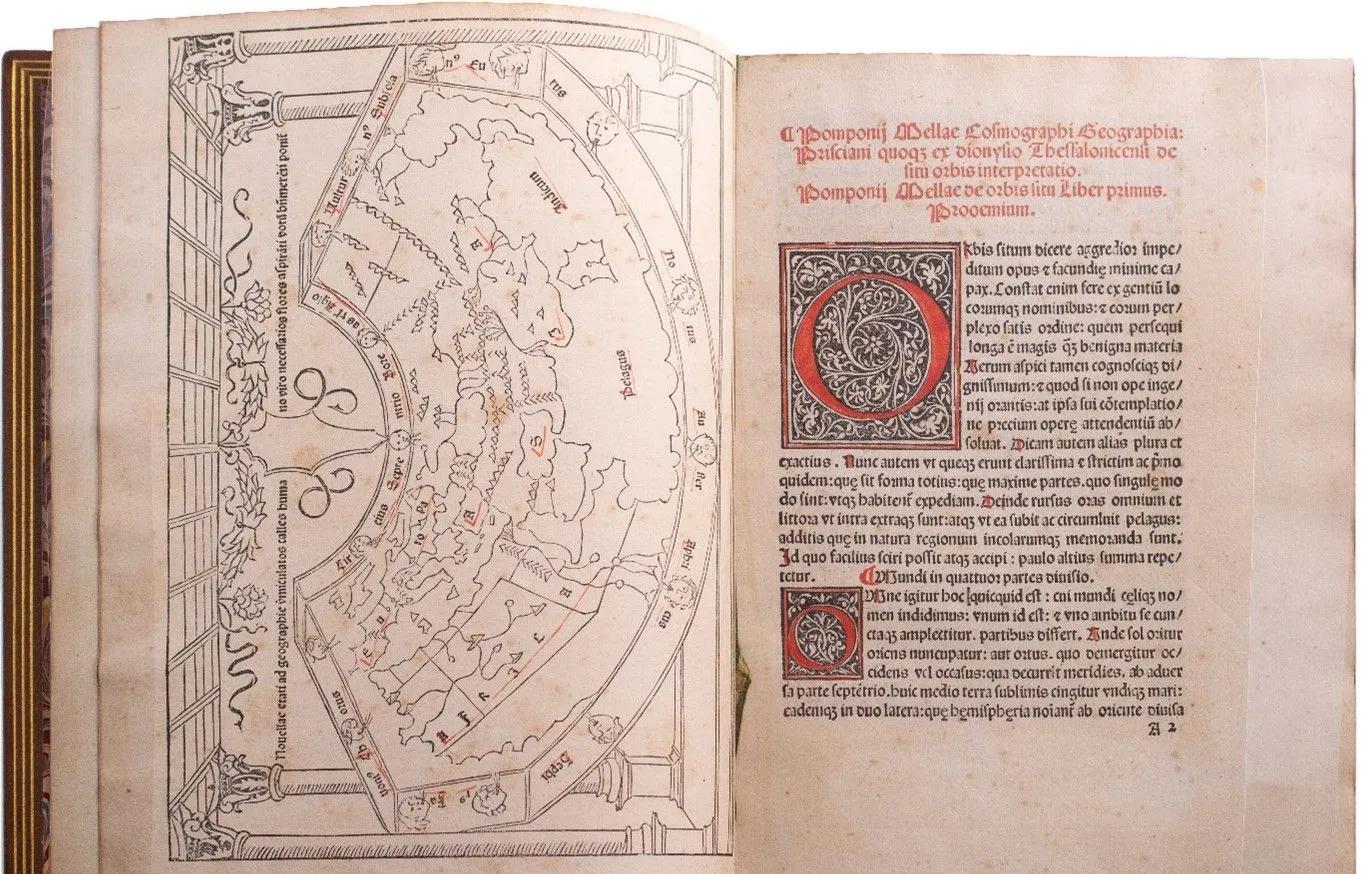 Nouellae etati ad geographie vmiculatos calles huma
no viro necessarios flores aspirāti votū bn̄merēti ponit
Indicum
Pelagus
¶ Pomponij Mellae Cosmographi Geographia:
Prisciani quoqꝫ ex dionysio Thessalonicensi de
situ orbis interpretatio.
Pomponij Mellae de orbis situ Liber primus.
Prooemium.
ORbis situm dicere aggredior impe/
ditum opus ⁊ facundię minime ca/
pax. Constat enim fere ex gentiū lo
corumqꝫ nominibus: ⁊ eorum per/
plexo satis ordine: quem persequi
longa ē magis q̄ꝫ benigna materia
Verum aspici tamen cognosciqꝫ di/
gnissimum: ⁊ quod si non ope inge/
nij orantis: at ipsa sui cōtemplatio/
ne precium operę attendentiū ab/
soluat. Dicam autem alias plura et
exactius. Nunc autem vt queqꝫ erunt clarissima ⁊ strictim ac p̄mo
quidem: quę sit forma totius: que maxime partes. quo singulę mo
do sint: vtqꝫ habitent̄ expediam. Deinde rursus oras omnium et
littora vt intra extraqꝫ sunt: atqꝫ vt ea subit ac circumluit pelagus:
additis quę in natura regionum incolarumqꝫ memoranda sunt.
Id quo facilius sciri possit atqꝫ accipi: paulo altius summa repe/
tetur. ¶ Mundi in quattuor partes diuisio.
OMne igitur hoc quicquid est: cui mundi cęliqꝫ no/
men indidimus: vnum id est: ⁊ vno ambitu se cun/
ctaqꝫ amplectitur. partibus differt. Vnde sol oritur
oriens nuncupatur: aut ortus. quo demergitur oc/
cidens vel occasus: qua decurrit meridies. ab aduer
sa parte septētrio. huic medio terra sublimis cingitur vndiqꝫ mari:
eademqꝫ in duo latera: quę hęmisphęria noīant̄ ab oriente diuisa
A 2